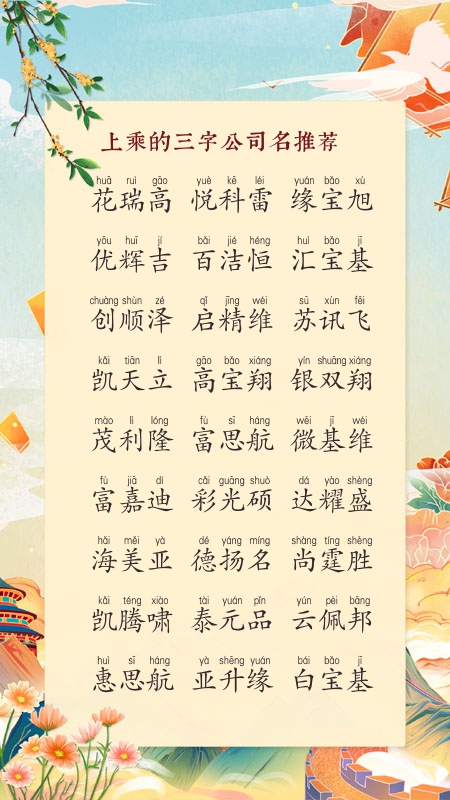 上乘的三字公司名推荐
huā ruì gāo yuè kē léi yuán bǎo xù
花瑞高 悦科雷 缘宝旭
yōu huī jí bǎi jié héng huì bǎo jī
优辉吉 百洁恒 汇宝基
chuàng shùn zé qǐ jīng wéi sū xùn fēi
创顺泽 启精维 苏讯飞
kǎi tiān lì gāo bǎo xiáng yín shuāng xiáng
凯天立 高宝翔 银双翔
mào lì lóng fù sī háng wēi jī wéi
茂利隆 富思航 微基维
fù jiā dí cǎi guāng shuò dá yào shèng
富嘉迪 彩光硕 达耀盛
hǎi měi yà dé yáng míng shàng tíng shèng
海美亚 德扬名 尚霆胜
kǎi téng xiào tài yuán pǐn yún pèi bāng
凯腾啸 泰元品 云佩邦
huì sī háng yà shēng yuán bái bǎo jī
惠思航 亚升缘 白宝基